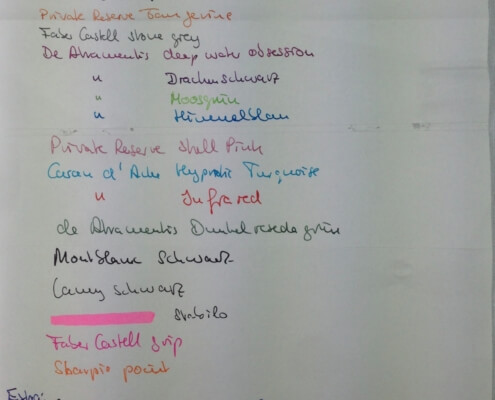 Private Reserve Tangerine
Faber Castell stone grey
De Atramentis deep water obsession
" Drachenschwarz
" Moosgrün
" Himmelblau
Private Reserve Shell Pink
Caran d'Ache Hypnotic Turquoise
" Infrared
de Atramentis Dunkelresedagrün
Montblanc Schwarz
Lamy Schwarz
Stabilo
Faber Castell grip
Sharpie point